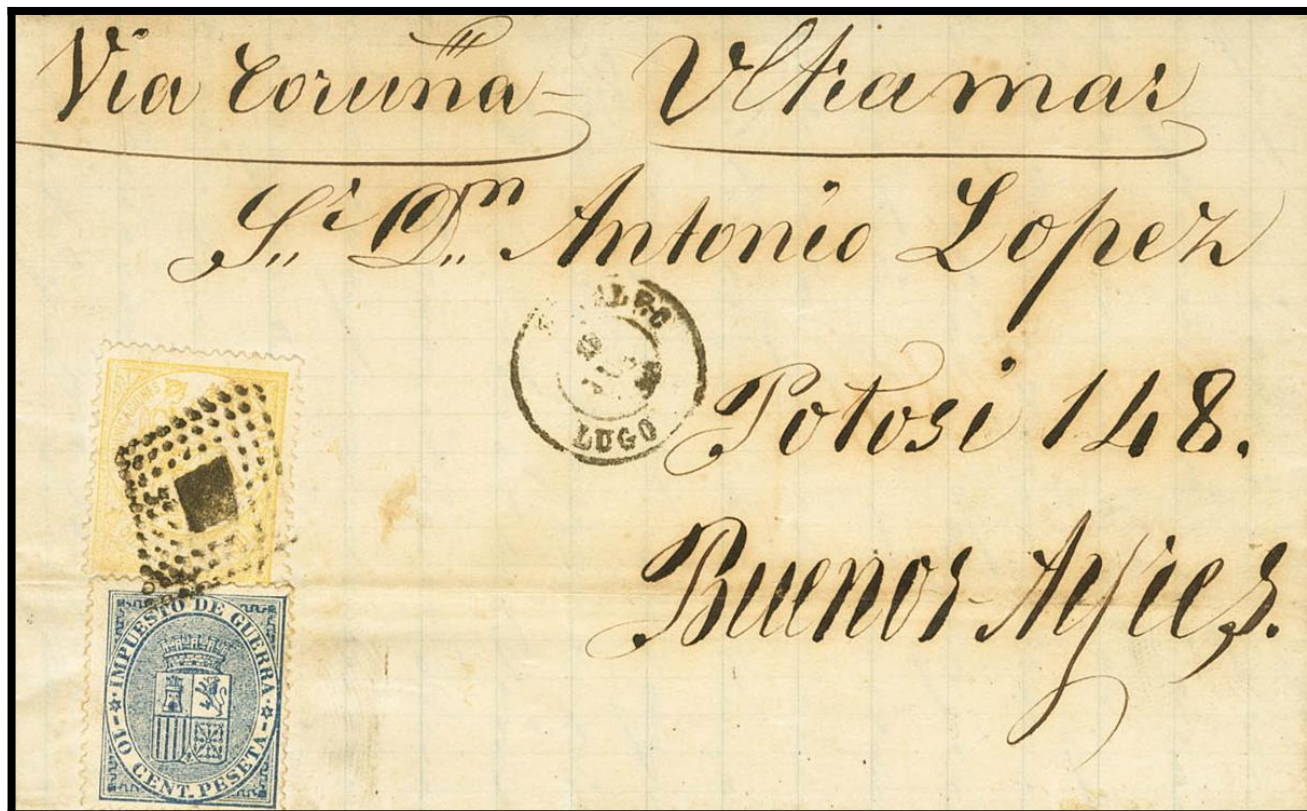 Via Coruña - Ultramar
Sr. Dn. Antonio Lopez
LUGO
Potosi 148.
Buenos Ayres.
IMPUESTO DE GUERRA
10 CENT. PESETA